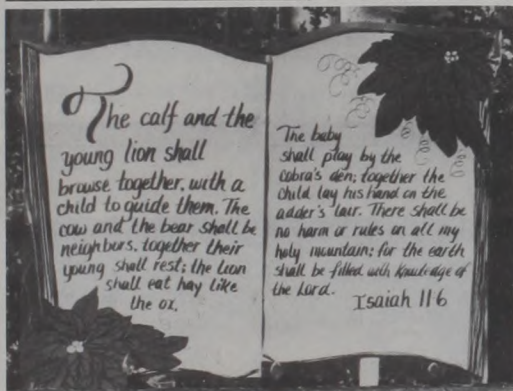 The calf and the
young lion shall
browse together, with a
child to guide them. The
cow and the bear shall be
neighbors, together their
young shall rest; the lion
shall eat hay like
the ox.
The baby
shall play by the
cobra's den; together the
child lay his hand on the
adder's lair. There shall be
no harm or rules on all my
holy mountain; for the earth
shall be filled with knowledge of
the Lord.
Isaiah 116